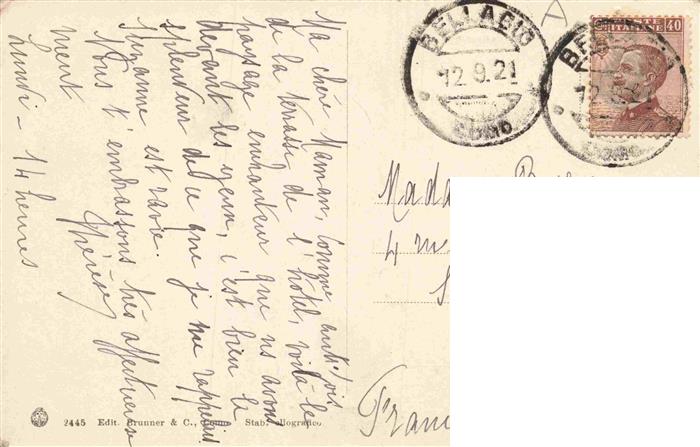 Ma chère Maman, Comme autrefois
de la terrasse de l'hôtel, voilà le
paysage enchanteur que ns avons
devant les yeux, c'est bien la
splendeur de ce que je me rappelais
Suzanne est ravie.
Nous t'embrassons très affectueuse
ment
Thérèse
Lundi - 14 heures
BELLAGIO
12.9.21
COMO
40
Mada
4 rue
Fran
2445 Edit. Brunner & C., Como Stab. eliografico